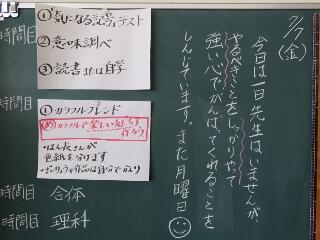 2/7
(金)
今日は一日先生はいませんが、
やるべきことをしっかりやって
強い心でがんばってくれることを
しんじています。また月曜日
時間目
①「気になる記号」テスト
②意味調べ
③読書または自学
時間目
①カラフルフレンド
め カラフルで楽しい友だちを
作ろう
・はん長さんが
色紙を分けます
作品は自分でかんり
時間目 合体
時間目 理科